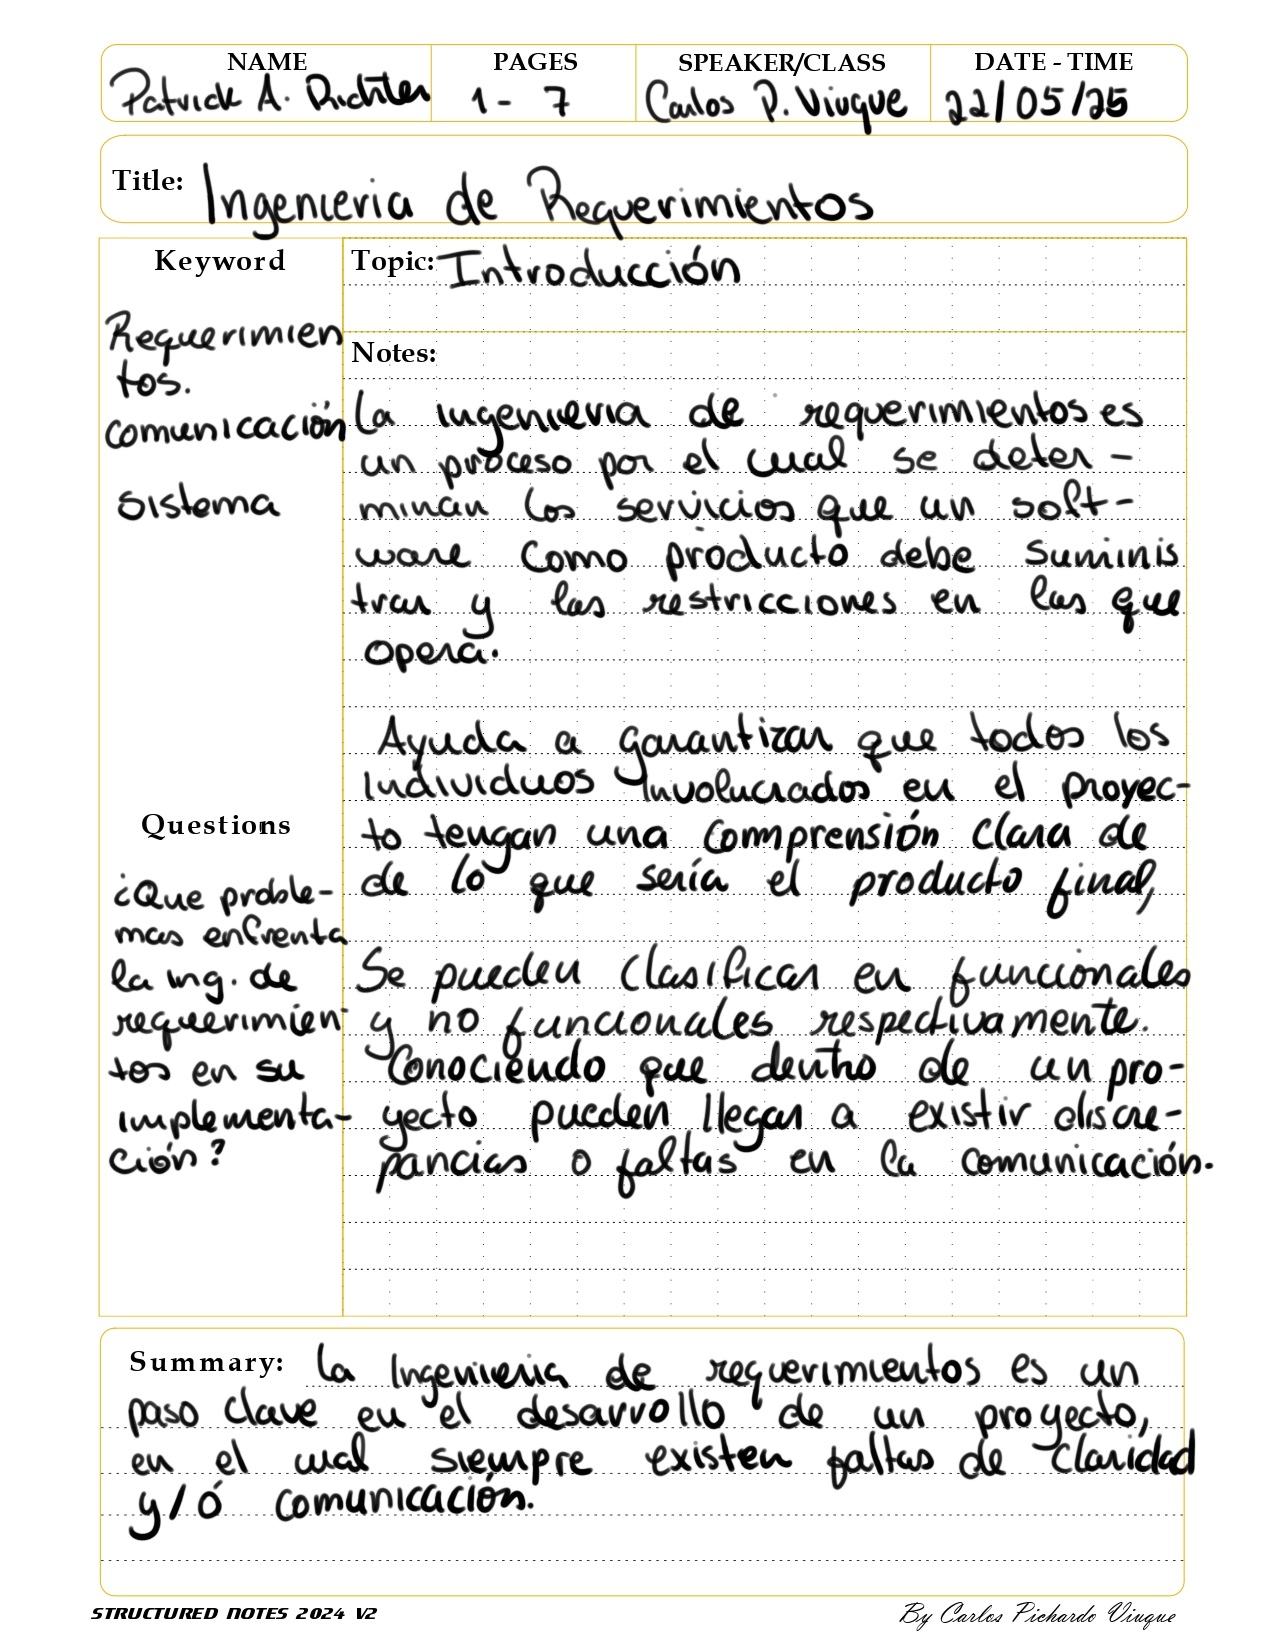 NAME PAGES SPEAKER/CLASS DATE - TIME
Patrick A. Richter 1 - 7 Carlos P. Viuque 22/05/25
Title: Ingenieria de Requerimientos
Keyword
Requerimien
tos.
comunicación
sistema
Questions
¿Que proble-
mas enfrenta
la ing. de
requerimien
tos en su
implementa-
ción?
Topic: Introducción
Notes:
La ingenieria de requerimientos es
un proceso por el cual se deter -
minan los servicios que un soft-
ware como producto debe suminis
trar y las restricciones en las que
opera.
Ayuda a garantizar que todos los
individuos involucrados en el proyec-
to tengan una comprensión clara de
de lo que sería el producto final,
Se pueden clasificar en funcionales
y no funcionales respectivamente.
Conociendo que dentro de un pro-
yecto pueden llegar a existir discre-
pancias o faltas en la comunicación.
Summary: La Ingenieria de requerimientos es un
paso clave en el desarrollo de un proyecto,
en el cual siempre existen faltas de claridad
y/ó comunicación.
STRUCTURED NOTES 2024 V2 By Carlos Pichardo Viuque